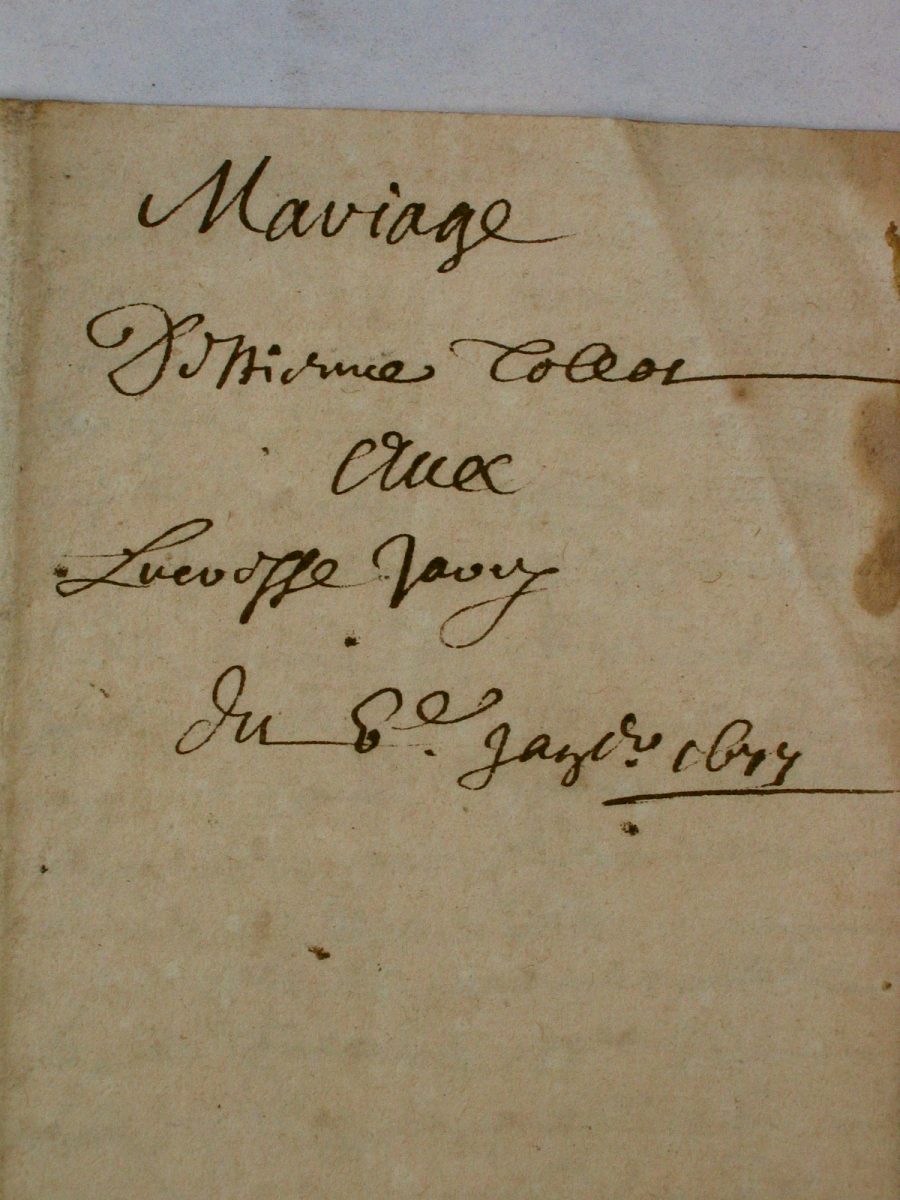 Mariage
D'estienne Collot
Auec
Lucresse Jaury
du 8e. Januier 1677